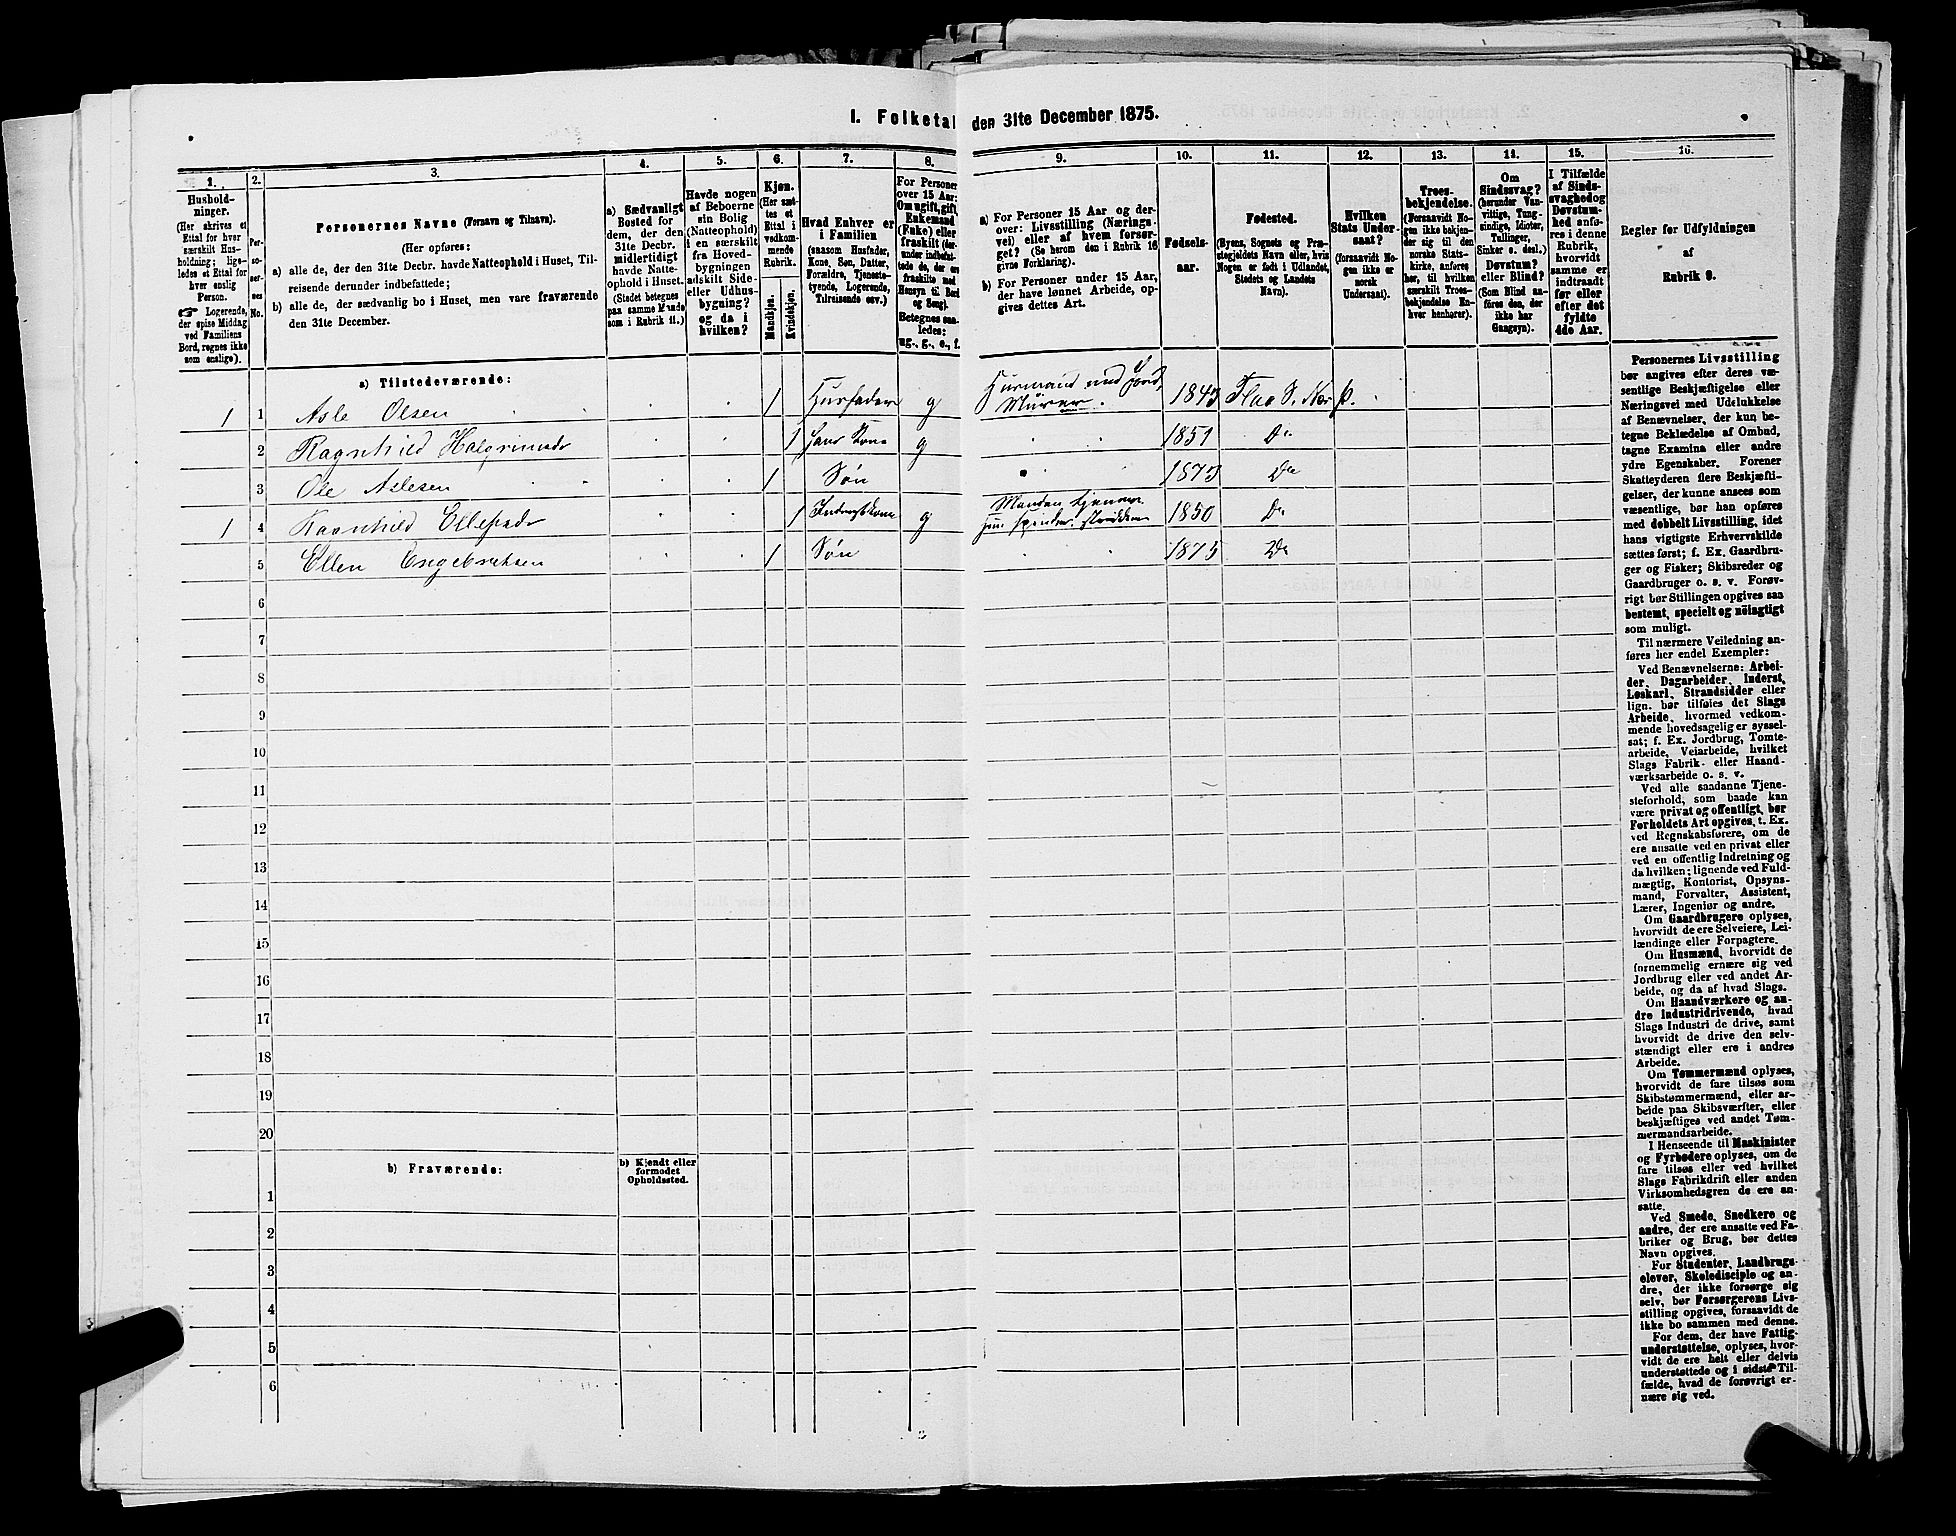 I. Folketal den 31te December 1875.
1.
Hushold-
ninger.
(Her skrives et
Ettal for hver
særskilt Hus-
holdning; lige-
ledes et Ettal for
hver enslig
Person.
☞ Logerende,
der spise Middag
ved Familiens
Bord, regnes ikke
som enslige).
2.
Per-
so-
ner-
nes
No.
3.
Personernes Navne (Fornavn og Tilnavn).
(Her opføres:
a) alle de, der den 31te Decbr. havde Natteophold i Huset, Til-
reisende derunder indbefattede;
b) alle de, der sædvanlig bo i Huset, men vare fraværende
den 31te December.
4.
a) Sædvanligt
Bosted for
dem, der den
31te Decbr.
midlertidigt
havde Natte-
ophold i Huset.
(Stedet betegnes
paa samme Maade
som i Rubrik 11.)
5.
Havde nogen
af Beboerne
sin Bolig
(Natteophold)
i en særskilt
fra Hoved-
bygningen
adskilt Side-
eller Udhus-
bygning?
og da i
hvilken?
6.
Kjøn.
(Her sæt-
tes et
Ettal i
vedkom-
mende
Rubrik.
Mandkjøn.
Kvindekjøn.
7.
Hvad Enhver er
i Familien
(saasom Husfader,
Kone, Søn, Datter,
Forældre, Tjeneste-
tyende, Logerende,
Tilreisende osv.)
8.
For Personer
over 15 Aar:
Om ugift, gift,
Enkemand
(Enke) eller
fraskilt (der-
under indbefat-
tede de, der ere
fraskilte med
Hensyn til Bord
og Seng).
Betegnes saa-
ledes:
ug., g., e., f.
9.
a) For Personer 15 Aar og der-
over: Livsstilling (Nærings-
vei) eller af hvem forsør-
get? (Se herom den i Rubrik 16
givne Forklaring).
b) For Personer under 15 Aar,
der have lønnet Arbeide, op-
gives dettes Art.
10.
Fødsels-
aar.
11.
Fødested.
(Byens, Sognets og Præ-
stegjeldets Navn eller, hvis
Nogen er født i Udlandet,
Stedets og Landets
Navn).
12.
Hvilken
Stats Under-
saat?
(forsaavidt No-
gen ikke er
norsk
Undersaat).
13.
Troes-
bekjendelse.
(Forsaavidt No-
gen ikke bekjen-
der sig til den
norske Stats-
kirke, anføres
her, til hvilken
særskilt Troes-
bekjendelse En-
hver henhører).
14.
Om
Sindssvag?
(herunder Van-
vittige, Tung-
sindige, Idioter,
Tullinger,
Sinker o. desl.)
Døvstum?
eller Blind?
(Som Blind an-
føres den, der
ikke har
Gangsyn).
15.
I Tilfælde
af Sinds-
svaghed og
Døvstum-
hed anfø-
res i denne
Rubrik,
hvorvidt
samme er
indtraadt
før eller
efter det
fyldte
4de Aar.
16.
Regler for Udfyldningen
af
Rubrik 9.
a) Tilstedeværende:
1 1 Asle Olsen 1 Husfader g Husmand med Jord, Murer. 1843 Flaa S. Nes P.
2 Ragnhild Halgrimsdr 1 hans Kone g 1851 Do
3 Ole Aslesen 1 Søn 1873 Do
1 4 Ragnhild Ellefsdr 1 g Manden tjener 1850 Do
5 Ellen Engebretsen 1 Søn 1875 Do
6
7
8
9
10
11
12
13
14
15
16
17
18
19
20
b) Fraværende:
b) Kjendt eller
formodet
Opholdssted.
1
2
3
4
5
6
Personernes Livsstilling
bør angives efter deres væ-
sentlige Beskjæftigelse eller
Næringsvei med Udelukkelse
af Benævnelser, der kun be-
tegne Beklædelse af Ombud,
tagne Examina eller andre
ydre Egenskaber. Forener
Skatteyderen flere Beskjæfti-
gelser, der kunne ansees som
væsentlige, bør han opføres
med dobbelt Livsstilling, idet
hans vigtigste Erhvervskilde
sættes først; f. Ex. Gaardbru-
ger og Fisker; Skibsreder og
Gaardbruger o. s. v. Forøv-
rigt bør Stillingen opgives saa
bestemt, specielt og nöiagtigt
som muligt.
Til nærmere Veiledning an-
føres her endel Exempler:
Ved Benævnelserne: Arbei-
der, Dagarbeider, Inderst,
Løskarl, Strandsidder eller
lign. bør tilføies det Slags
Arbeide, hvormed vedkom-
mende hovedsagelig er syssel-
sat; f. Ex. Jordbrug, Tomte-
arbeide, Veiarbeide, hvilket
Slags Fabrik- eller Haand-
værksarbeide o. s. v.
Ved alle saadanne Tjene-
steforhold, som baade kan
være privat og offentligt, bør
Forholdets Art opgives, t. Ex.
ved Regnskabsførere, om de
ere ansatte ved en privat eller
ved en offentlig Indretning og
da hvilken; lignende ved Fuld-
mægtig, Kontorist, Opsyns-
mand, Forvalter, Assistent,
Lærer, Ingeniør og andre.
Om Gaardbrugere oplyses,
hvorvidt de ere Selveiere, Lei-
lændinge eller Forpagtere.
Om Husmænd, hvorvidt de
fornemmelig ernære sig ved
Jordbrug eller ved andet Ar-
beide, og da af hvad Slags.
Om Haandværkere og an-
dre Industridrivende, hvad
Slags Industri de drive, samt
hvorvidt de drive den selv-
stændigt eller ere i andres
Arbeide.
Om Tømmermænd oplyses,
hvorvidt de fare tilsøs som
Skibstømmermænd, eller ar-
beide paa Skibsværfter, eller
beskjæftiges ved andet Tøm-
mermandsarbeide.
I Henseende til Maskinister
og Fyrbødere oplyses, om de
fare tilsøs eller ved hvilket
Slags Fabrikdrift eller anden
Virksomhedsgren de ere an-
satte.
Ved Smede, Snedkere og
andre, der ere ansatte ved Fa-
briker og Brug, bør dettes
Navn opgives.
For Studenter, Landbrugs-
elever, Skoledisciple og an-
dre, der ikke forsørge sig
selv, bør Forsørgerens Livs-
stilling opgives, forsaavidt de
ikke bo sammen med denne.
For dem, der have Fattig-
understøttelse, oplyses, hvor-
vidt de ere helt eller delvis
understøttede og i sidste Til-
fælde, hvad de forøvrigt er-
nære sig ved.